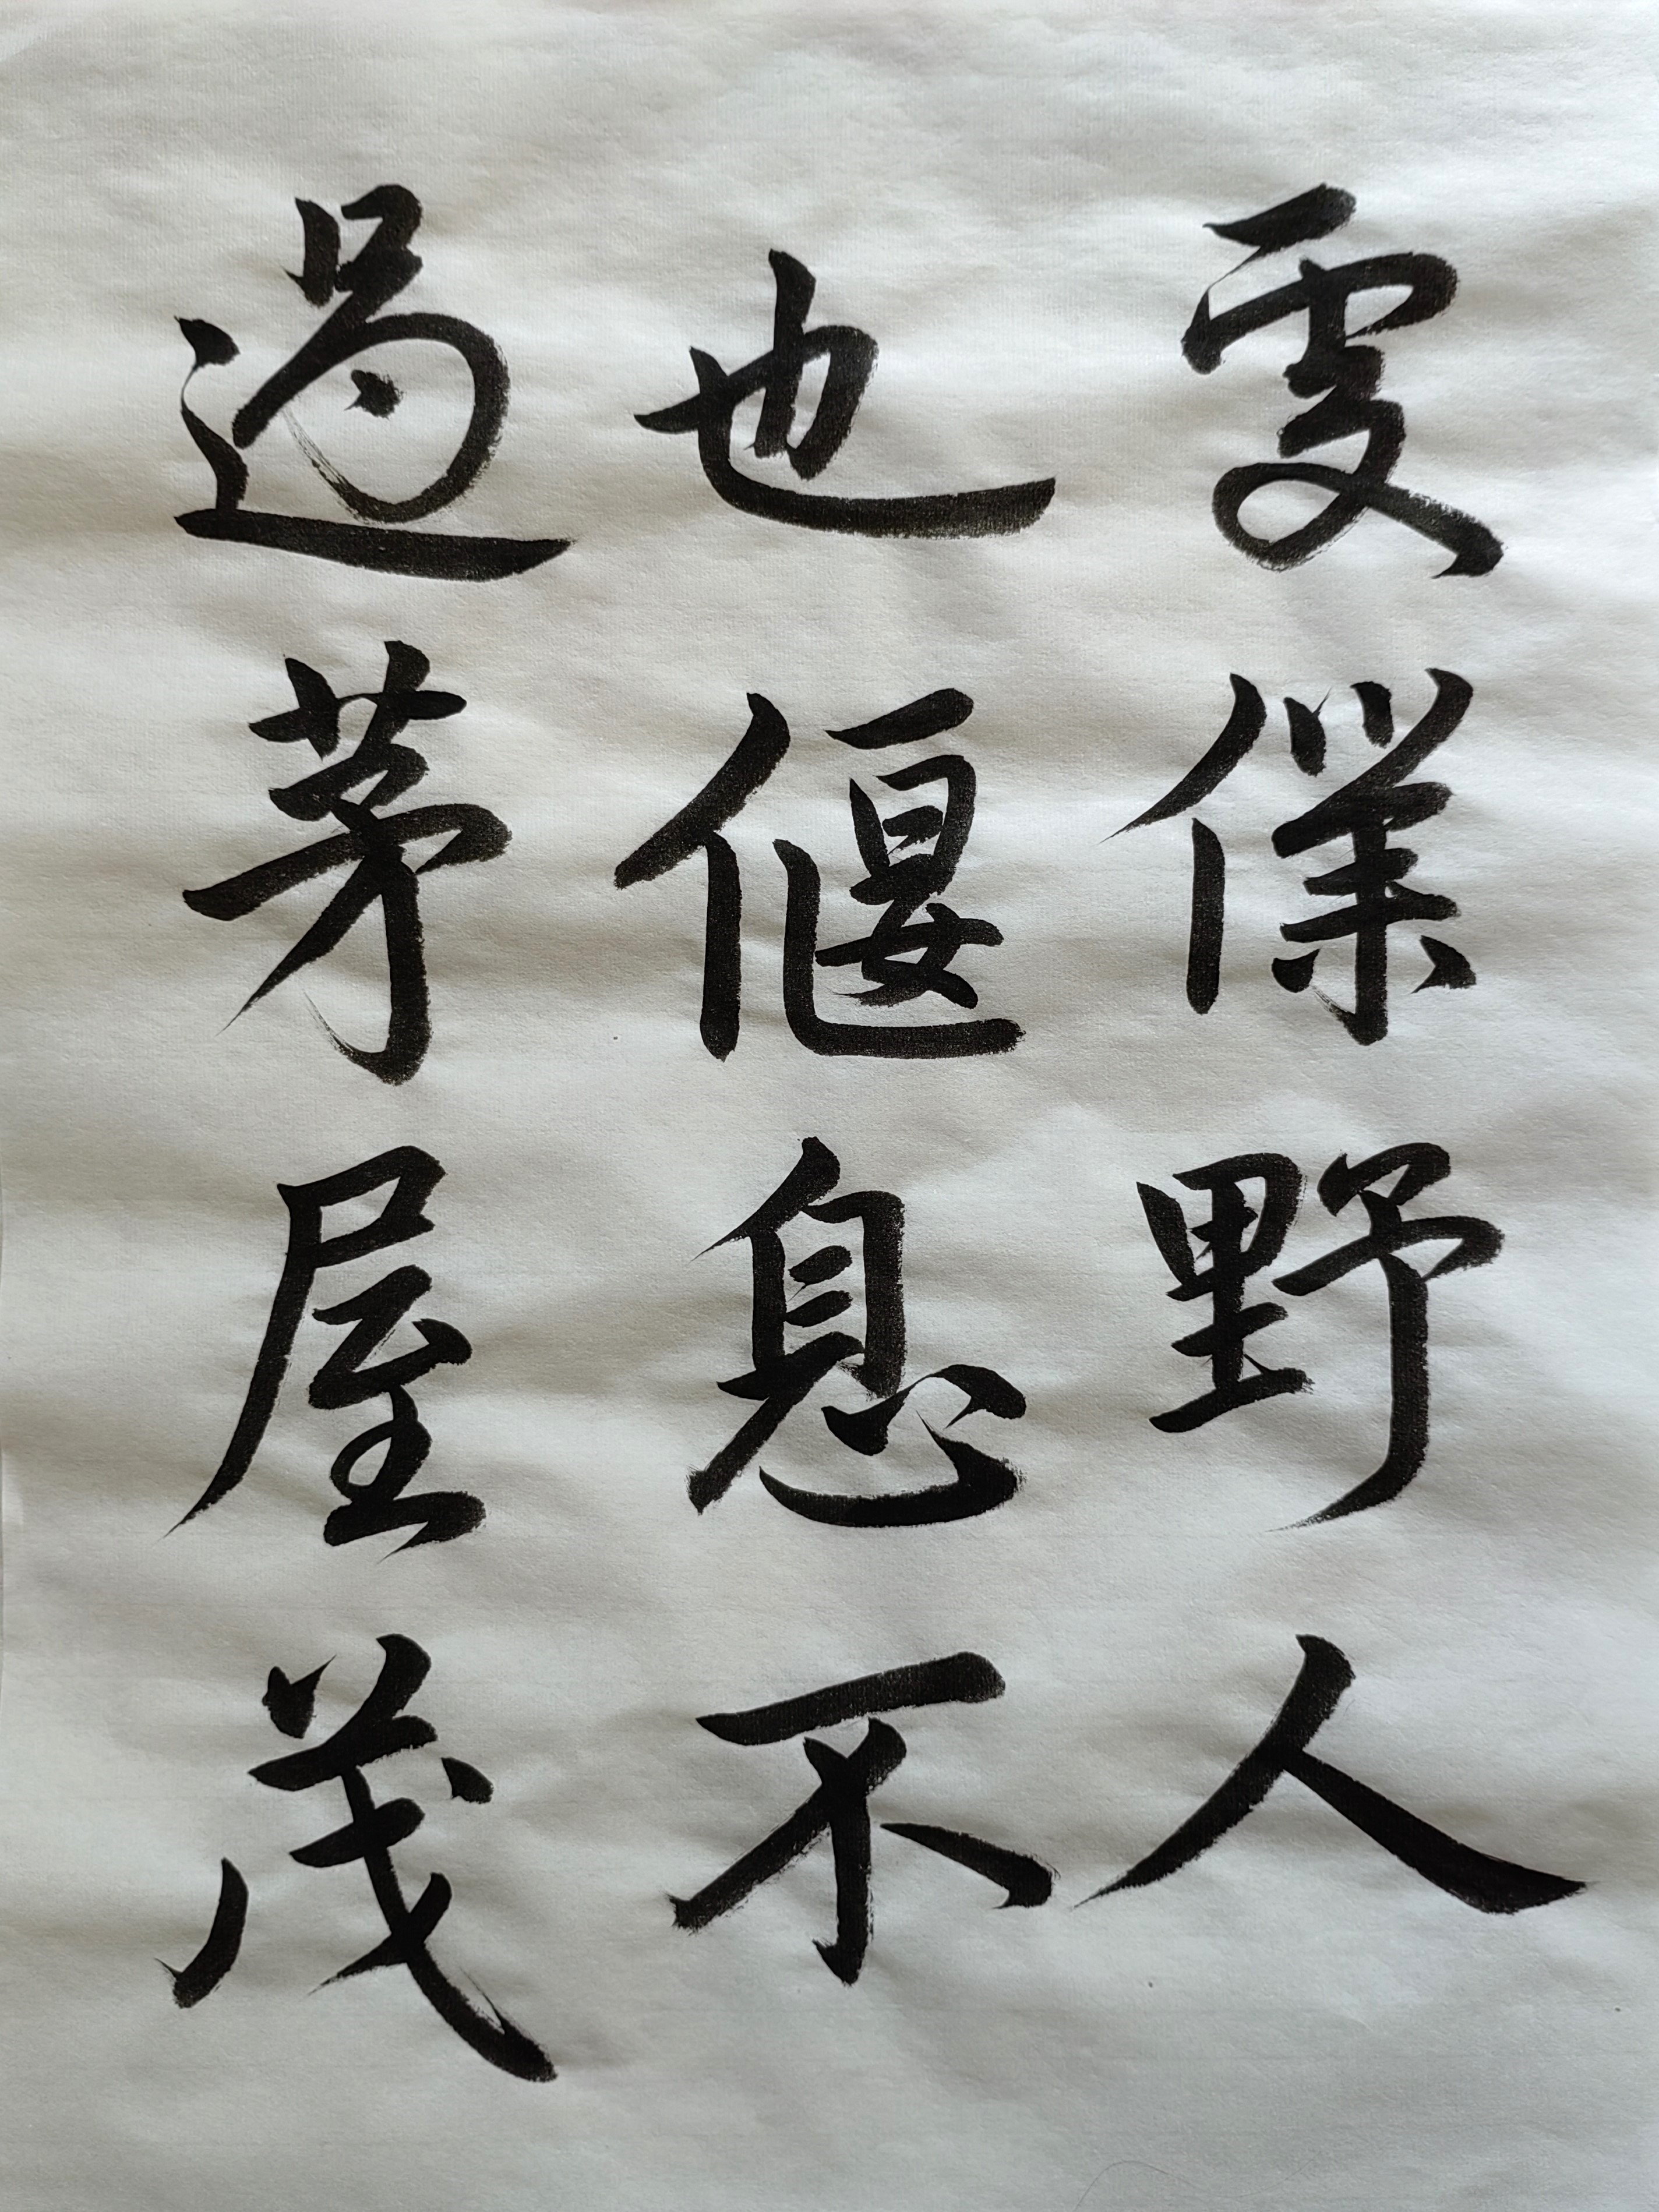 更僕野人
也偃息不
過茅屋茂